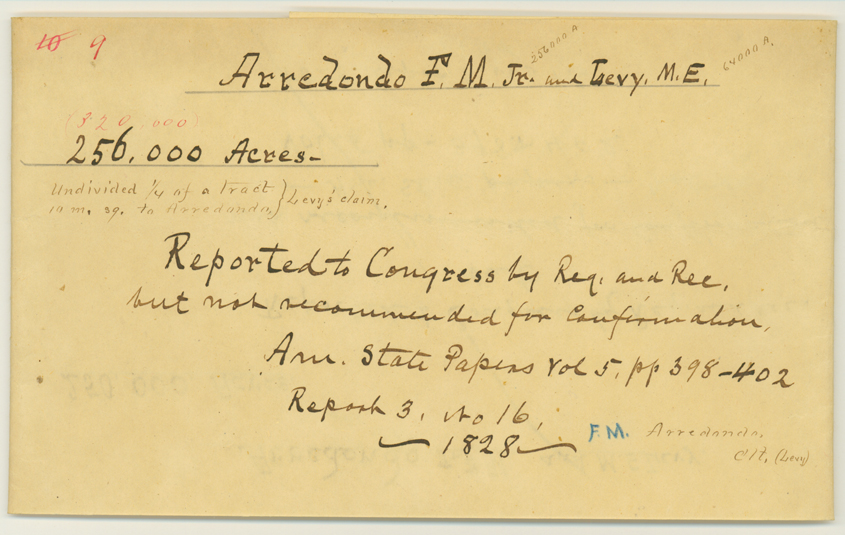 10 9
256000 A
64000 A.
Arredondo F. M. Jr. and Levy, M. E.
(320,000)
256,000 Acres-
Undivided 1/4 of a tract } Levy's claim.
10 m. sq. to Arredondo,
Reported to Congress by Reg. and Rec.
but not recommended for Confirmation,
Am. State Papers Vol 5, pp 398-402
Report 3, No 16,
1828
F. M. Arredondo,
(Levy)